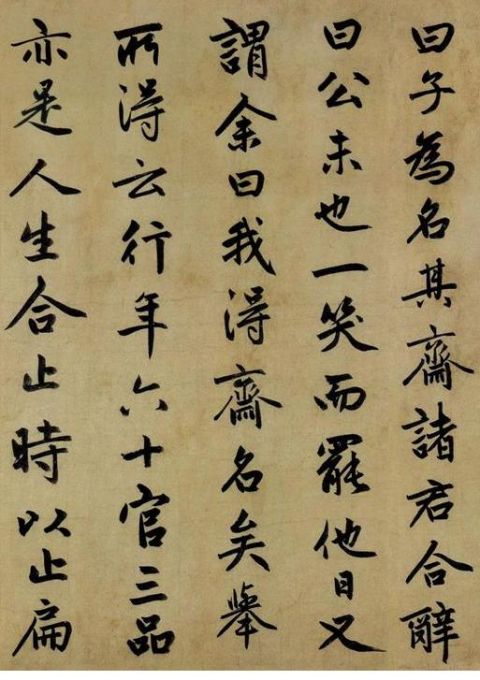 曰子為名其齋諸君合辭
曰公未也一笑而罷他日又
謂余曰我得齋名矣舉
所得云行年六十官三品
亦是人生合止時以止扁